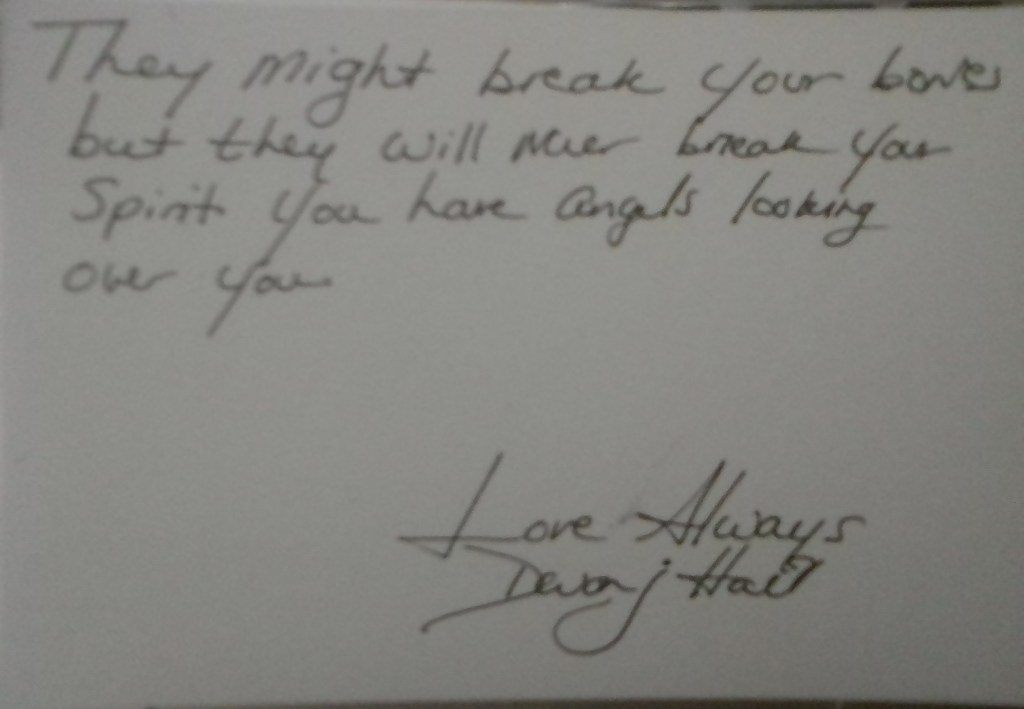 They might break your bones
but they will never break your
Spirit you have angels looking
over you
Love Always
Devon j